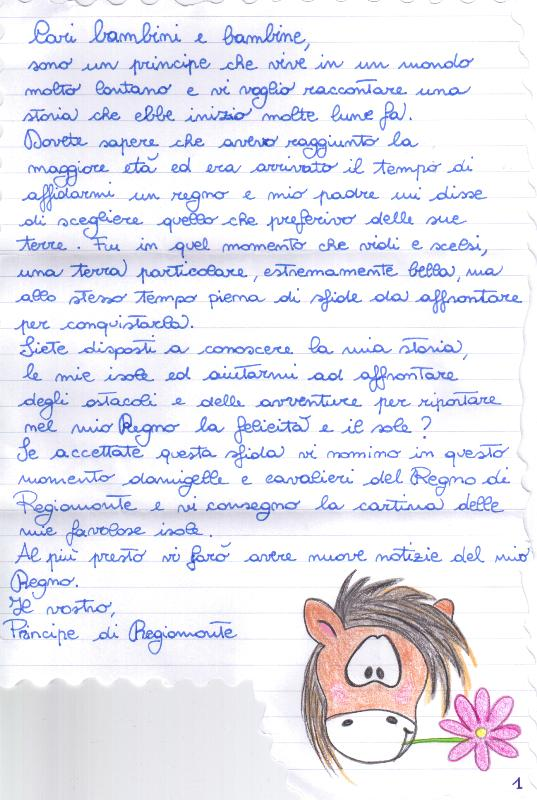 Cari bambini e bambine,
sono un principe che vive in un mondo
molto lontano e vi voglio raccontare una
storia che ebbe inizio molte lune fa.
Dovete sapere che avevo raggiunto la
maggiore età ed era arrivato il tempo di
affidarmi un regno e mio padre mi disse
di scegliere quello che preferivo delle sue
terre. Fu in quel momento che vidi e scelsi,
una terra particolare, estremamente bella, ma
allo stesso tempo piena di sfide da affrontare
per conquistarla.
Siete disposti a conoscere la mia storia,
le mie isole ed aiutarmi ad affrontare
degli ostacoli e delle avventure per riportare
nel mio Regno la felicità e il sole?
Se accettate questa sfida vi nomino in questo
momento damigelle e cavalieri del Regno di
Regiomonte e vi consegno la cartina delle
mie favolose isole.
Al più presto vi farò avere nuove notizie del mio
Regno.
Il vostro,
Principe di Regiomonte
1